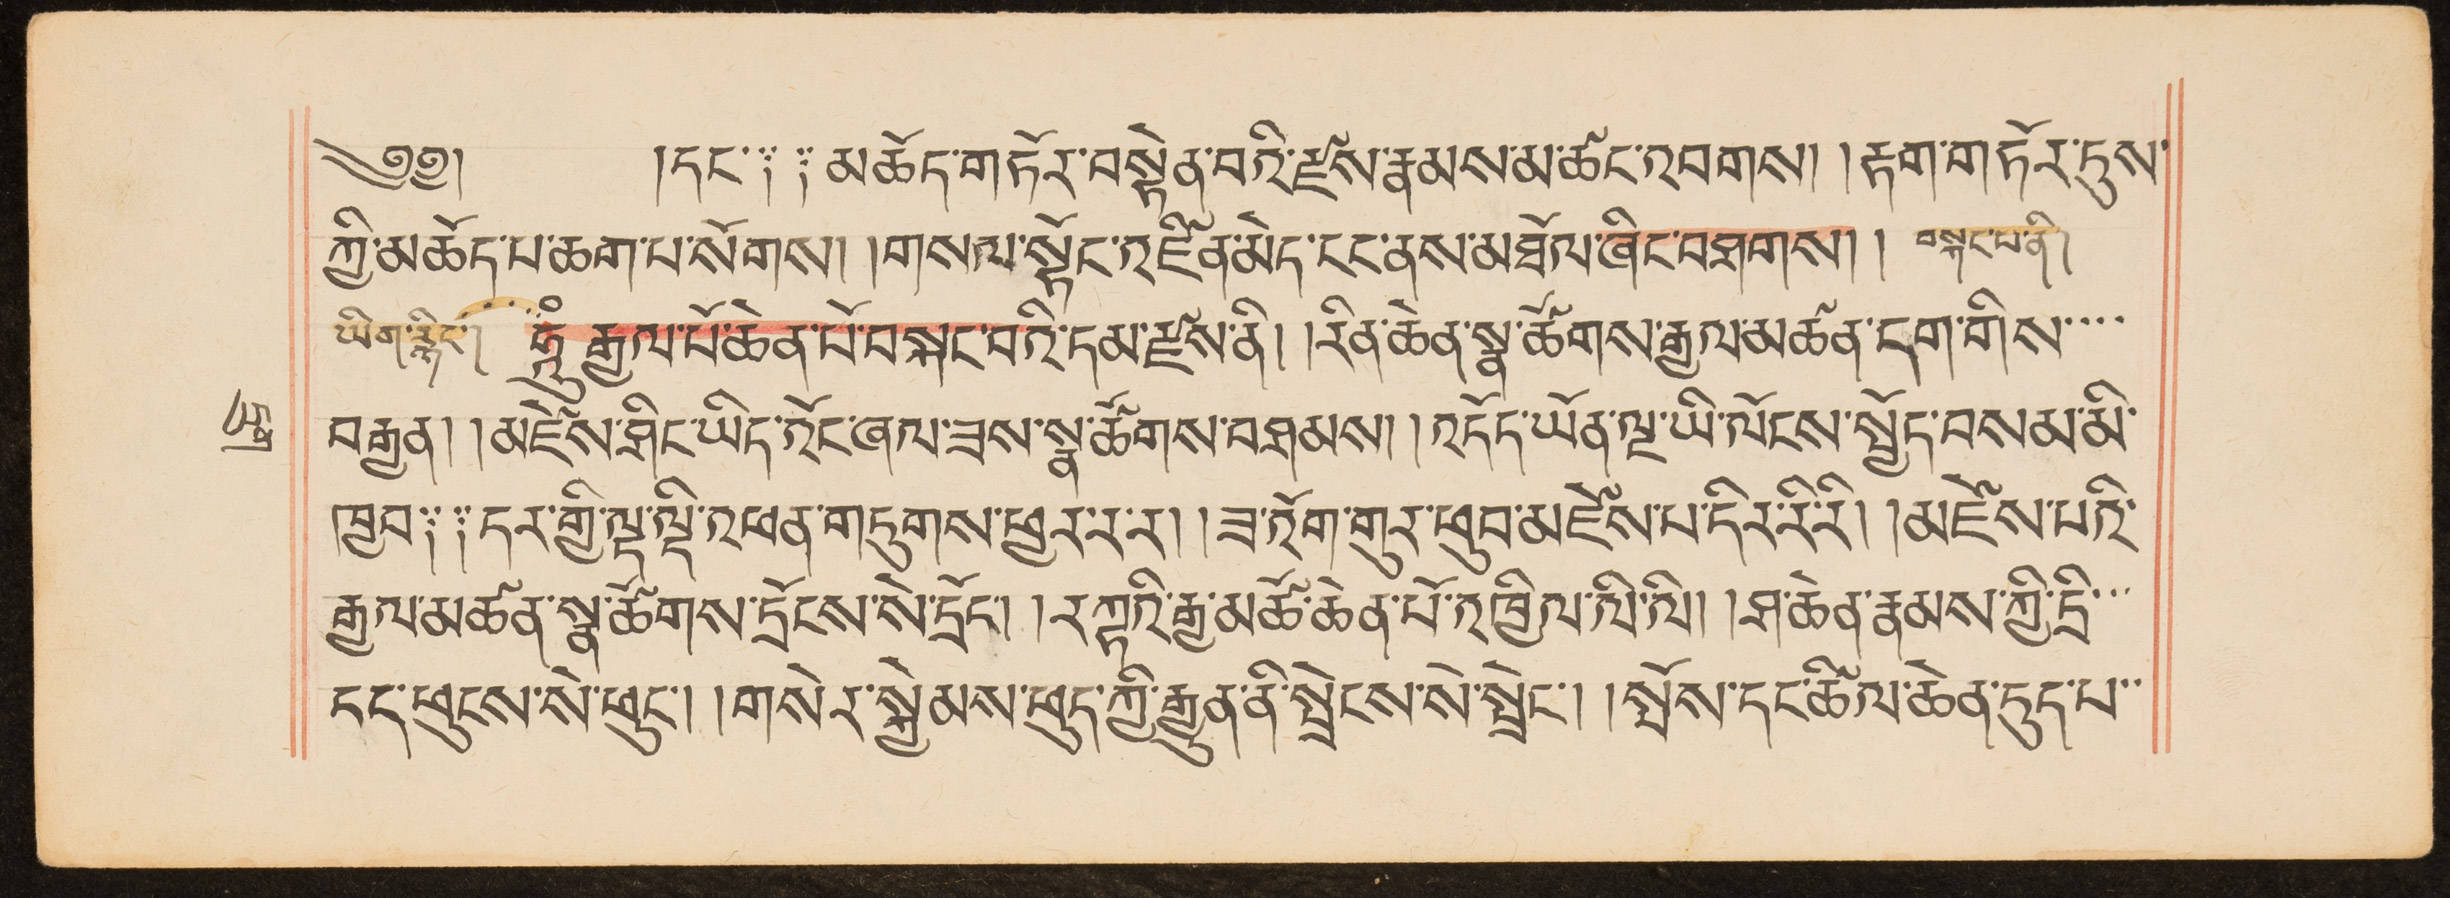 ༄༅། །དང་༔ ༔ མཆོད་གཏོར་བསྟེན་བའི་རྫས་རྣམས་མ་ཚང་འབགས། །རྟག་གཏོར་དུས་
ཀྱི་མཆོད་པ་ཆག་པ་སོགས། །གསལ་སྟོང་འཛིན་མེད་ངང་ནས་མཐོལ་ཞིང་བཤགས། ། བསྐང་བ་ནི།
ཡིག་རྙིང་། ཧཱུྃ་རྒྱལ་པོ་ཆེན་པོ་བསྐང་བའི་དམ་རྫས་ནི། །རིན་ཆེན་སྣ་ཚོགས་རྒྱལ་མཚན་དག་གིས་
བརྒྱན། །མཛེས་ཤིང་ཡིད་འོང་ཞལ་ཟས་སྣ་ཚོགས་བཤམས། །འདོད་ཡོན་ལྔ་ཡི་ལོངས་སྤྱོད་བསམ་མི་
ཁྱབ༔ ༔ དར་གྱི་ལྡ་ལྡི་འཕན་གདུགས་ཕྱར་ར་ར། །ཟ་འོག་གུར་ཕུབ་མཛེས་པ་དིར་རི་རི། །མཛེས་པའི་
རྒྱལ་མཚན་སྣ་ཚོགས་དྲོངས་སེ་དྲོང་། །རཀྟའི་རྒྱ་མཚོ་ཆེན་པོ་འཁྱིལ་ལི་ལི། །ཤ་ཆེན་རྣམས་ཀྱི་དྲི་
དད་ཕུངས་སེ་ཕུང་། །གསེར་སྐྱེམས་ཕུད་ཀྱི་རྒྱུན་ནི་སྤྲེངས་སེ་སྤྲེང་། །སྤོས་དང་ཚིལ་ཆེན་དུད་པ་